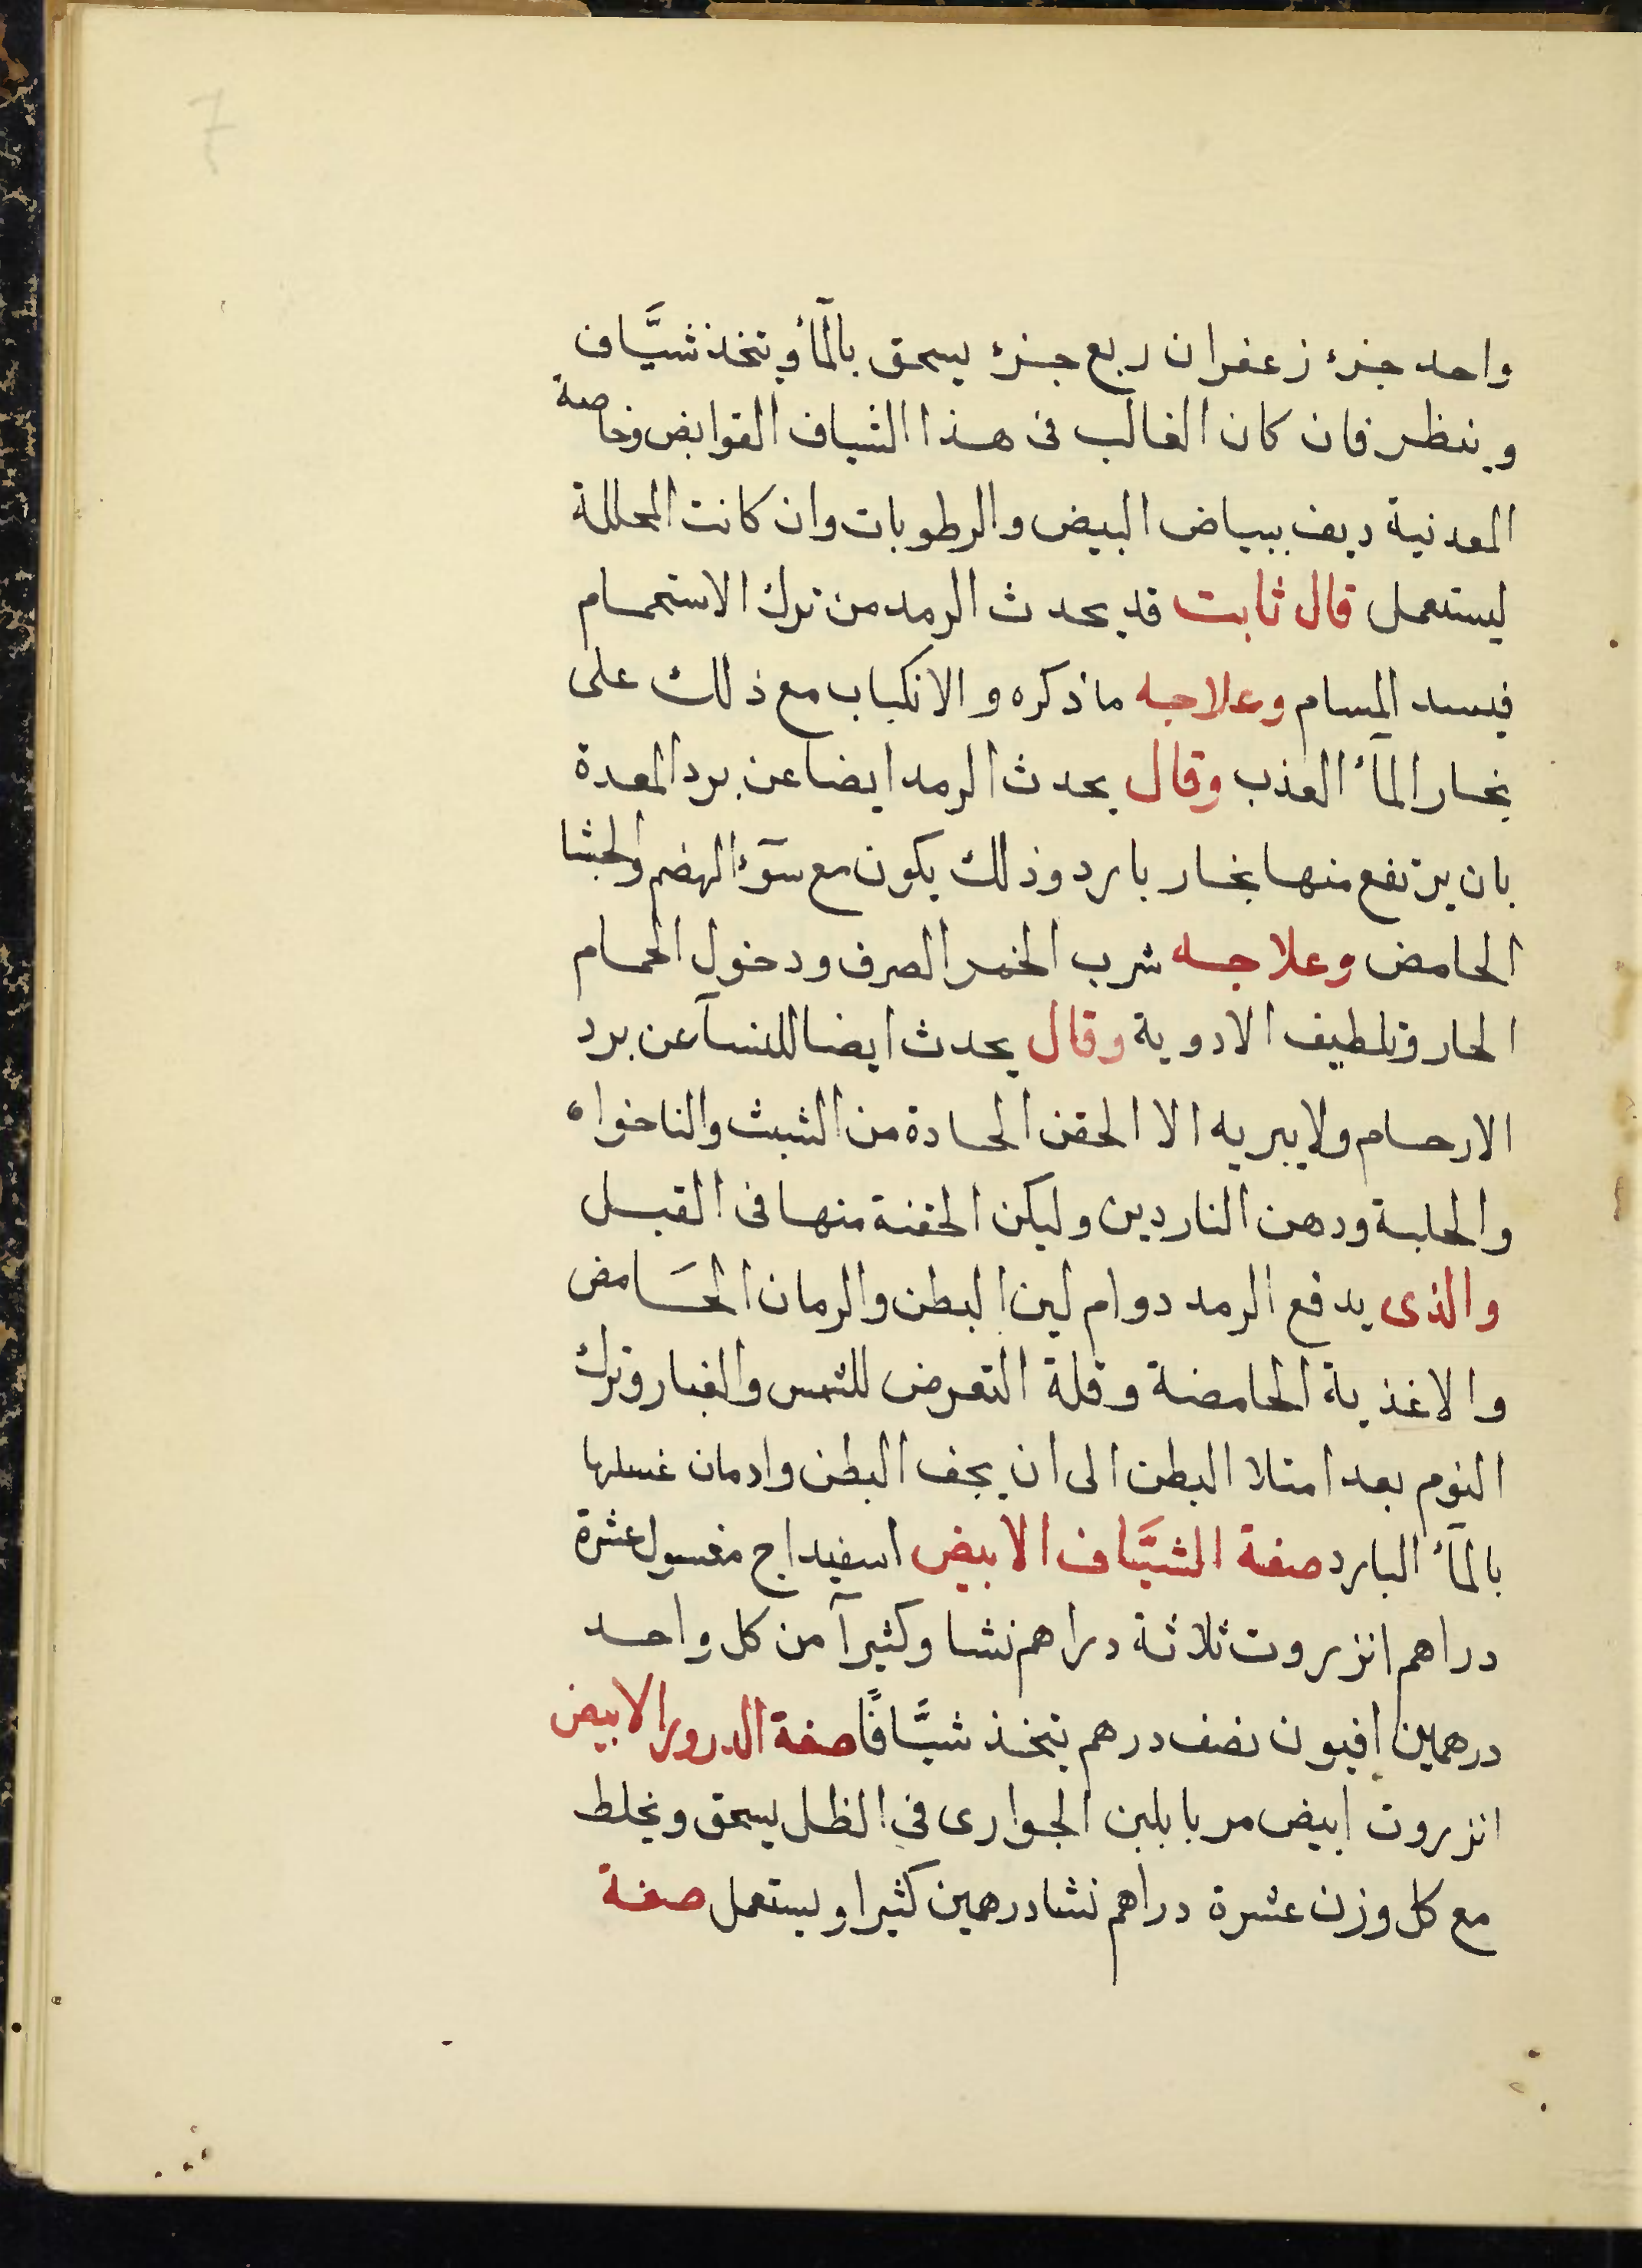 7
واحد جزء زعفران ربع جزء يسحق بالمآء ويتخذ شيَّاف
وينظر فان كان الغالب فى هذا الشياف القوابض وخاصة
المعدنية ديف ببياض البيض والرطوبات وان كانت المحللة
ليستعمل قال ثابت قد يحدث الرمد من ترك الاستحمام
فيسد المسام وعلاجه ما ذكره والانكباب مع ذلك على
بخار المآء العذب وقال يحدث الرمد ايضا عن برد المعدة
بان يرتفع منها بخار بارد وذلك يكون مع سوٓء الهضم والجشا
الحامض وعلاجه شرب الخمر الصرف ودخول الحمام
الحار وتلطيف الادوية وقال يحدث ايضا للنسآ عن برد
الارحام ولا يبريه الا الحقن الحادة من الشبث والناخواه
والحلبة ودهن الناردين وليكن الحقنة منها فى القبل
والذى يدفع الرمد دوام لين البطن والرمان الحَامض
والاغذية الحامضة وقلة التعرض للشمس والغبار وترك
النوم بعد امتلا البطن الى ان يجف البطن وادمان غسلها
بالمآء البارد صفة الشيَّاف الابيض اسفيداج مغسول عشرة
دراهم انزروت ثلاثة دراهم نشا وكثيرآ من كل واحد
درهمين افيون نصف درهم يتخذ شيَّافًا صفة الدرور الابيض
انزروت ابيض مربا بلبن الجوارى فى الظل يسحق ويخلط
مع كل وزن عشرة دراهم نشا درهمين كثيرا ويستعمل صفة